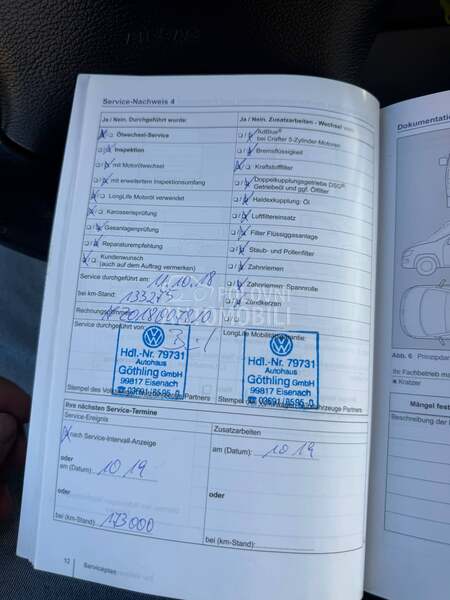 Service-Nachweis 4
Ja / Nein. Durchgeführt wurde:
Ölwechsel-Service
Inspektion
mit Motorölwechsel
mit erweitertem Inspektionsumfang
LongLife Motoröl verwendet
Karosserieprüfung
Gasanlagenprüfung
Reparaturempfehlung
Kundenwunsch
(auch auf dem Auftrag vermerken)
Service durchgeführt am: 11.10.18
bei km-Stand: 133275
Rechnungs
Service durchgeführt von:
Hdl.-Nr. 79731
Autohaus
Göthling GmbH
99817 Eisenach
☎ 03691/8595-0
Ja / Nein. Zusatzarbeiten - Wechsel von:
AdBlue®
bei Crafter 5-Zylinder-Motoren
Bremsflüssigkeit
Kraftstofffilter
Doppelkupplungsgetriebe DSG®
Getriebeöl und ggf. Ölfilter
Haldexkupplung: Öl
Luftfiltereinsatz
Filter Flüssiggasanlage
Staub- und Pollenfilter
Zahnriemen
Zahnriemen: Spannrolle
Zündkerzen
POLOVNI
AUTOMOBILI
LongLife Mobilitätsgarantie:
Hdl.-Nr. 79731
Autohaus
Göthling GmbH
99817 Eisenach
☎ 03691/8595-0
Ihre nächsten Service-Termine
Service-Ereignis
nach Service-Intervall-Anzeige
oder
am (Datum): 10 19
oder
bei (km-Stand): 173000
Zusatzarbeiten
am (Datum): 10 19
oder
bei (km-Stand):
12
Serviceplan
Dokumentation
Abb. 6
Ihr Fachbetrieb
Kratzer
Mängel
Beschreibung der